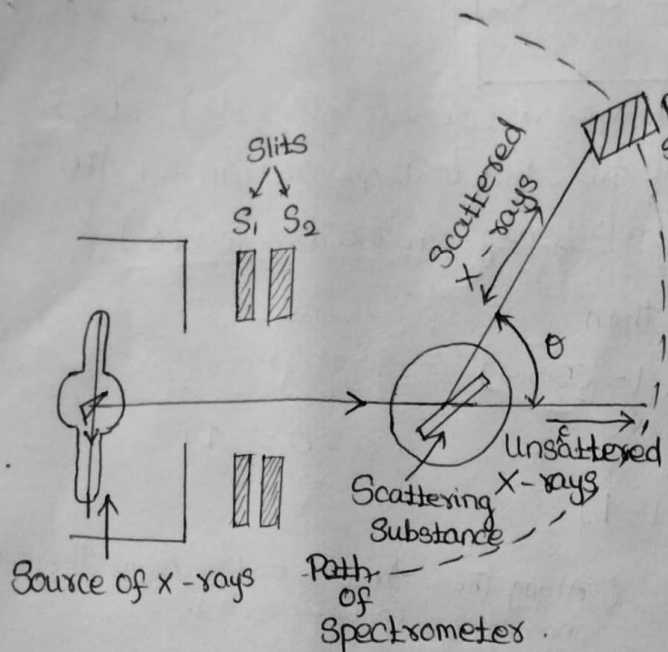 Slits
S1 S2
Scattered
X - rays
θ
Unscattered
X-rays
Scattering
Substance
Source of X-rays
Path
of
Spectrometer.